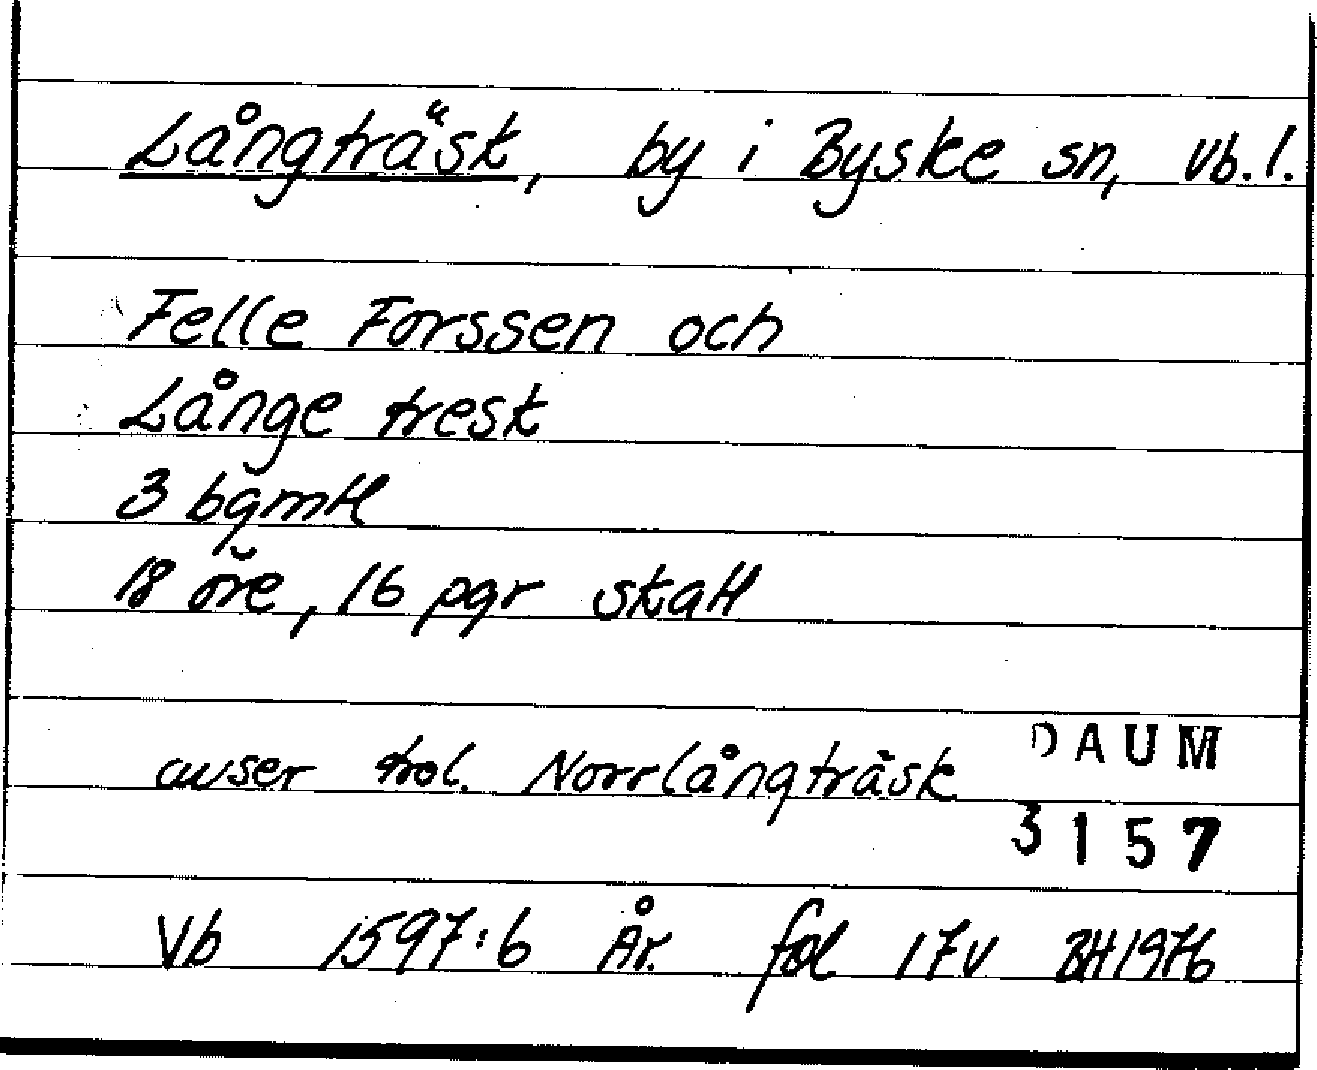 Långträsk, by i Byske sn, Vb. l.
Felle Forssen och
Långe tresk
3 bgmtl
18 öre, 16 pgr skatt
avser trol. Norrlångträsk
DAUM
3157
Vb 1597:6 År. fol 17v BH 1976